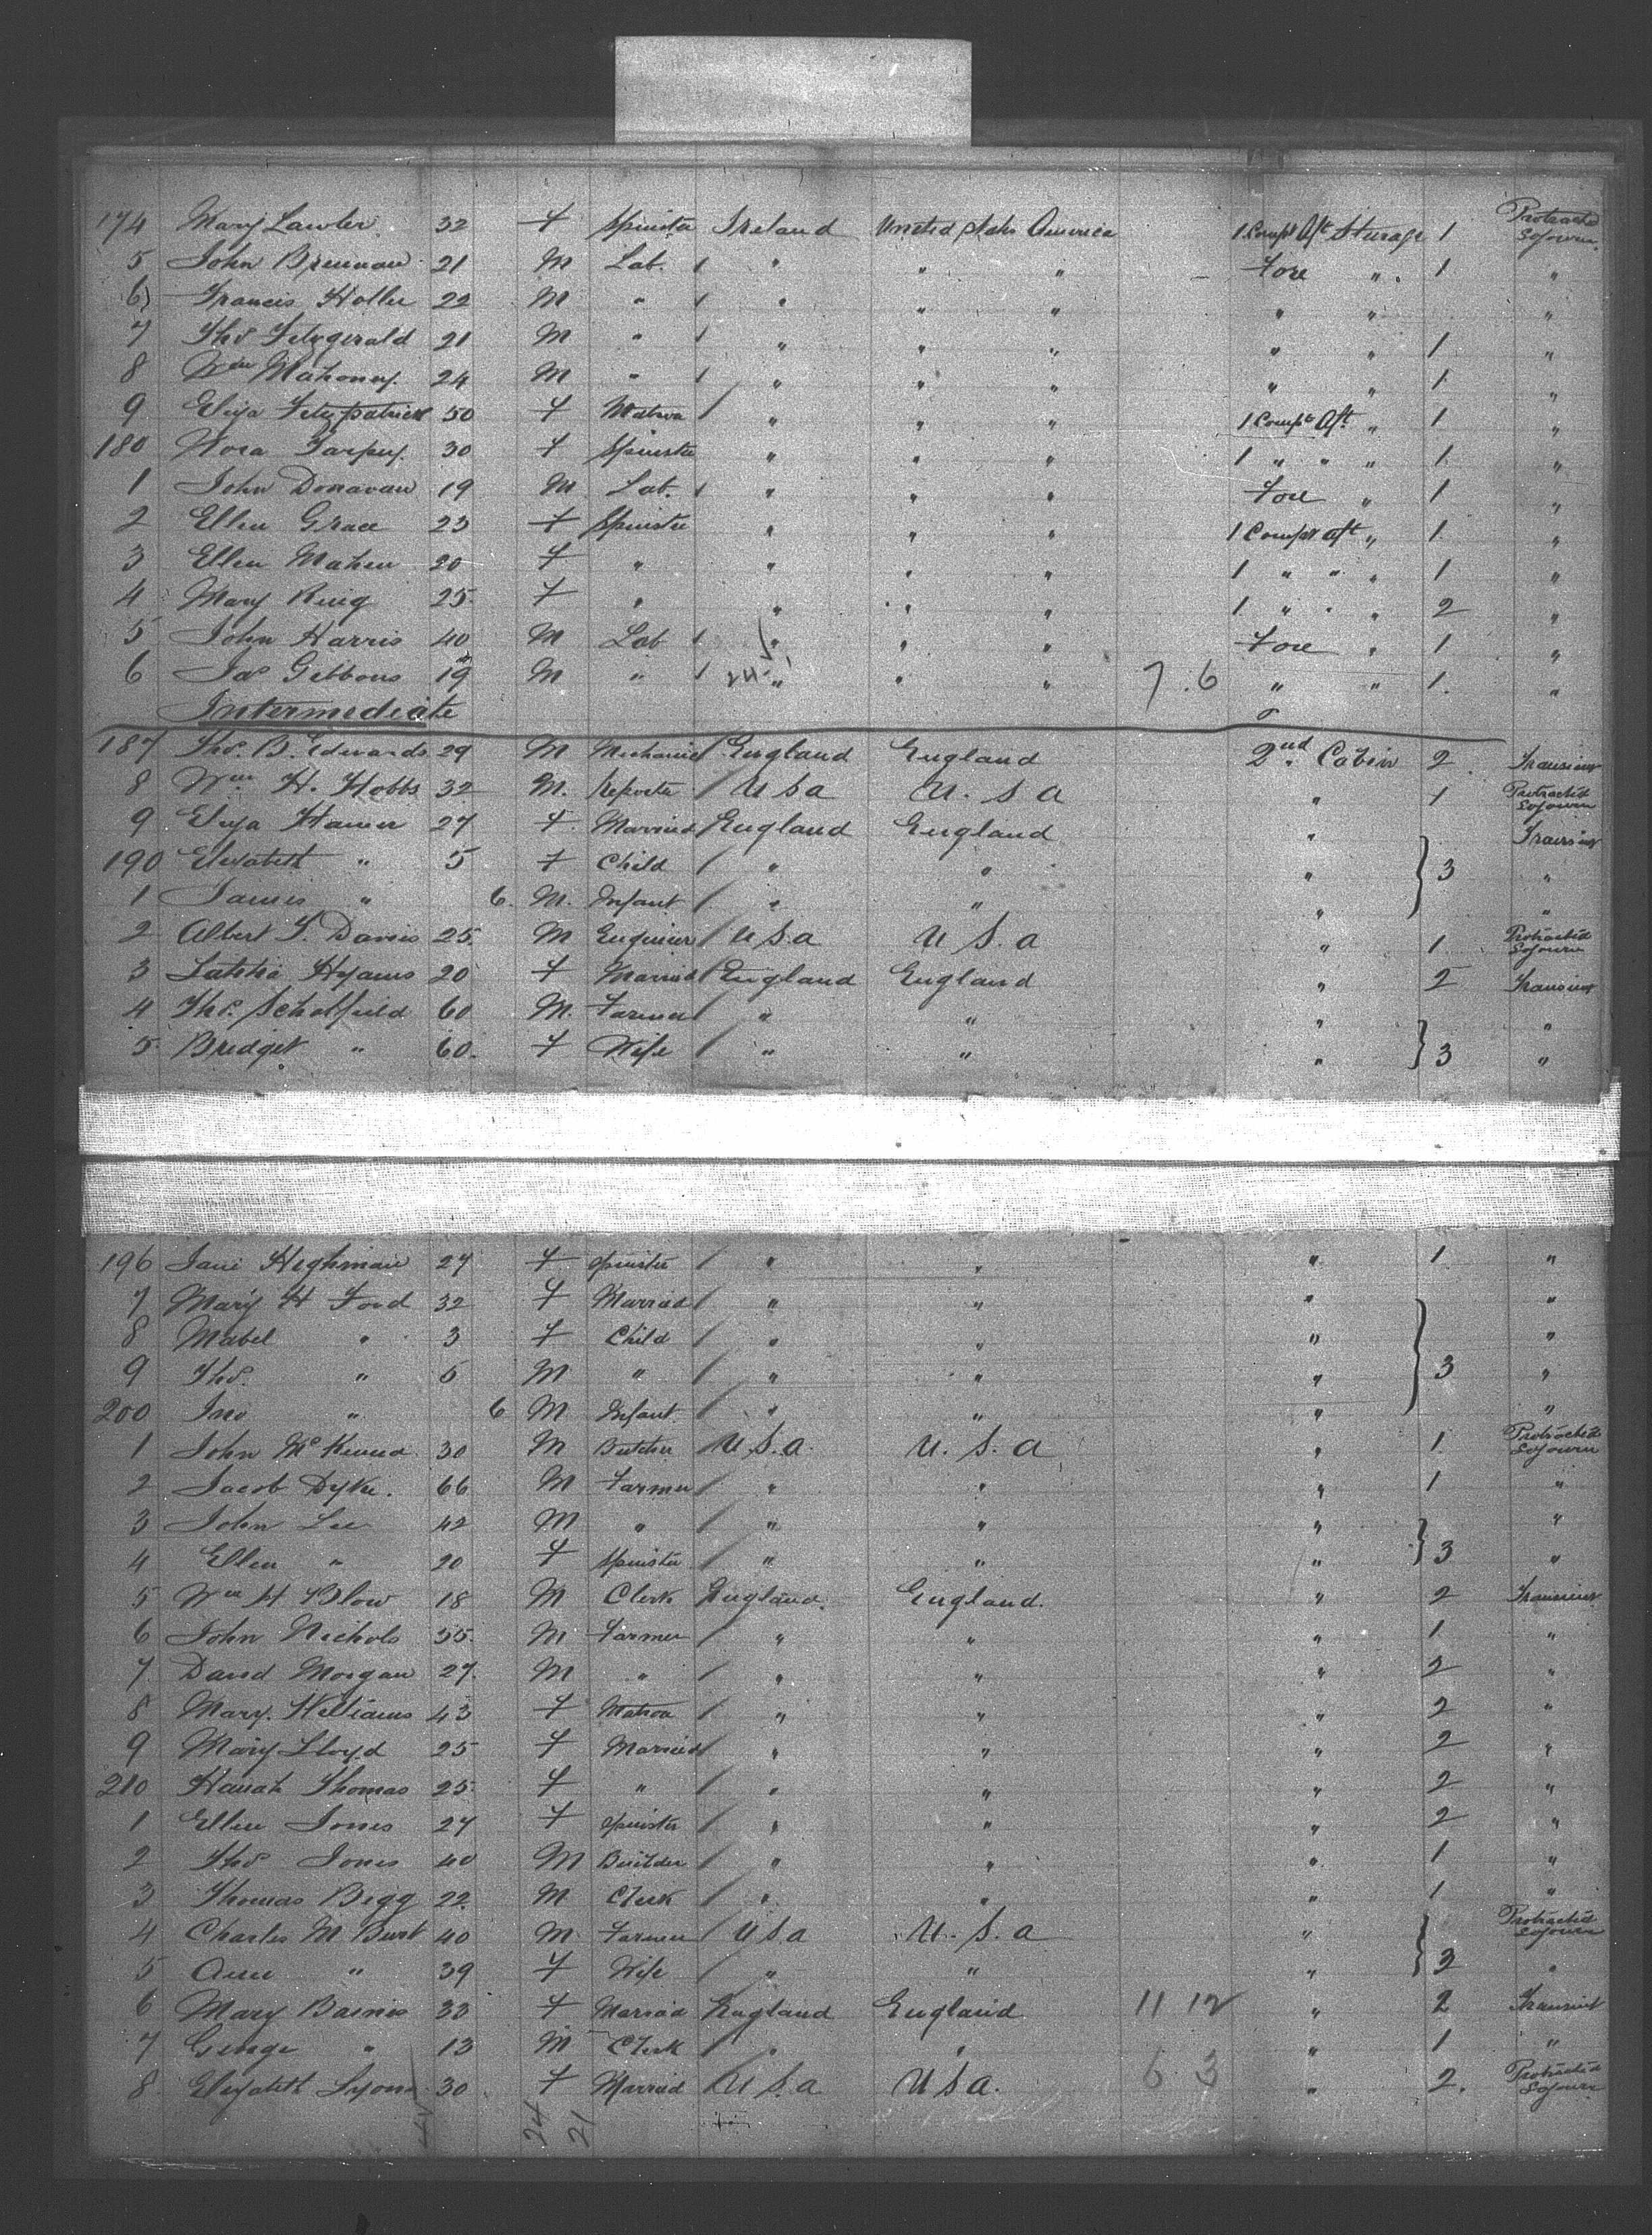 174 Mary Lawler 32 F Spinster Ireland United States America 1 Compt Aft Sturage 1 Protracted Sojourn
5 John Brennan 21 M Lab. 1 " " " Fore " 1 "
6 Francis Holler 22 M " 1 " " " " " "
7 Thos Fitzgerald 21 M " 1 " " " " " 1 "
8 Wm Mahoney 24 M " 1 " " " " " 1 "
9 Eliza Fitzpatrick 50 F Matron / " " " 1 Compt Aft. " 1 "
180 Nora Tarpey 30 F Spinster " " " 1 " " " 1 "
1 John Donavan 19 M Lab. 1 " " " Fore " 1 "
2 Ellen Grace 23 F Spinster " " " 1 Compt Aft " 1 "
3 Ellen Mahen 20 F " " " " 1 " " " 1 "
4 Mary King 25 F " " " " 1 " " " 2 "
5 John Harris 40 M Lab 1 " " " Fore " 1 "
6 Jas Gibbons 19 M " 1 24 " " " 7.6 " " 1 "
Intermediate
187 Thos. B. Edwards 29 M Mechanic / England England 2nd Cabin 2 Transient
8 Wm H. Hobbs 32 M. Reporter / U S a U. S a " 1 Protracted Sojourn
9 Eliza Hamer 27 F. Married / England England " Transient
190 Elizabeth " 5 F Child / " " " 3 "
1 James " 6. M. Infant / " " " "
2 Albert T. Davies 25 M Engineer / U S. a U S. a " 1 Protracted Sojourn
3 Latitia Hyams 20 F Married / England England " 2 Transient
4 Thos. Scholfield 60 M. Farmer / " " " "
5 Bridget " 60. F Wife / " " " 3 "
196 Jane Highman 27 F Spinster / " " " 1 "
7 Mary H Ford 32 F Married / " " " "
8 Mabel " 3 F Child / " " " "
9 Thos. " 5 M " / " " " 3 "
200 Jno " 6 M Infant. / " " " "
1 John 30 M Butcher / U. S. a. U. S. a " 1 Protracted Sojourn
2 Jacob Dyke. 66 M Farmer / " " " 1 "
3 John Lee 42 M " / " " " "
4 Ellen " 20 F Spinster / " " " 3 "
5 Wm H Blow 18 M Clerk England. England. " 2 Transient
6 John Nichols 55 M Farmer / " " " 1 "
7 David Morgan 27. M " / " " " 2 "
8 Mary. Williams 43 F Matron / " " " 2 "
9 Mary Lloyd 25 F Married / " " " 2 "
210 Hanah Thomas 25 F " / " " " 2 "
1 Ellen Jones 27 F Spinster / " " " 2 "
2 Thos Jones 40 M Builder / " " " 1 "
3 Thomas Begg 22. M Clerk / " " " 1 "
4 Charles M Burt 40 M Farmer / U S a U. S. a " Protracted Sojourn
5 Ann " 39 F Wife / " " " 3 "
6 Mary Baines 33 F Married England England 11 12 " 2 Transient
7 George " 13 M Clerk / " " " 1 "
8 Elizabeth Lyons 30 F Married / U S. a U S a. 6 3 " 2. Protracted Sojourn
24
21